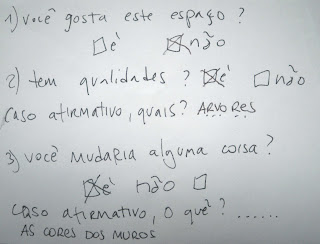 1) você gosta este espaço?
é não
2) tem qualidades? é não
Caso afirmativo, quais? ARVORES
3) você mudaria alguma coisa?
é não
Caso afirmativo, o quê? ......
AS CORES DOS MUROS